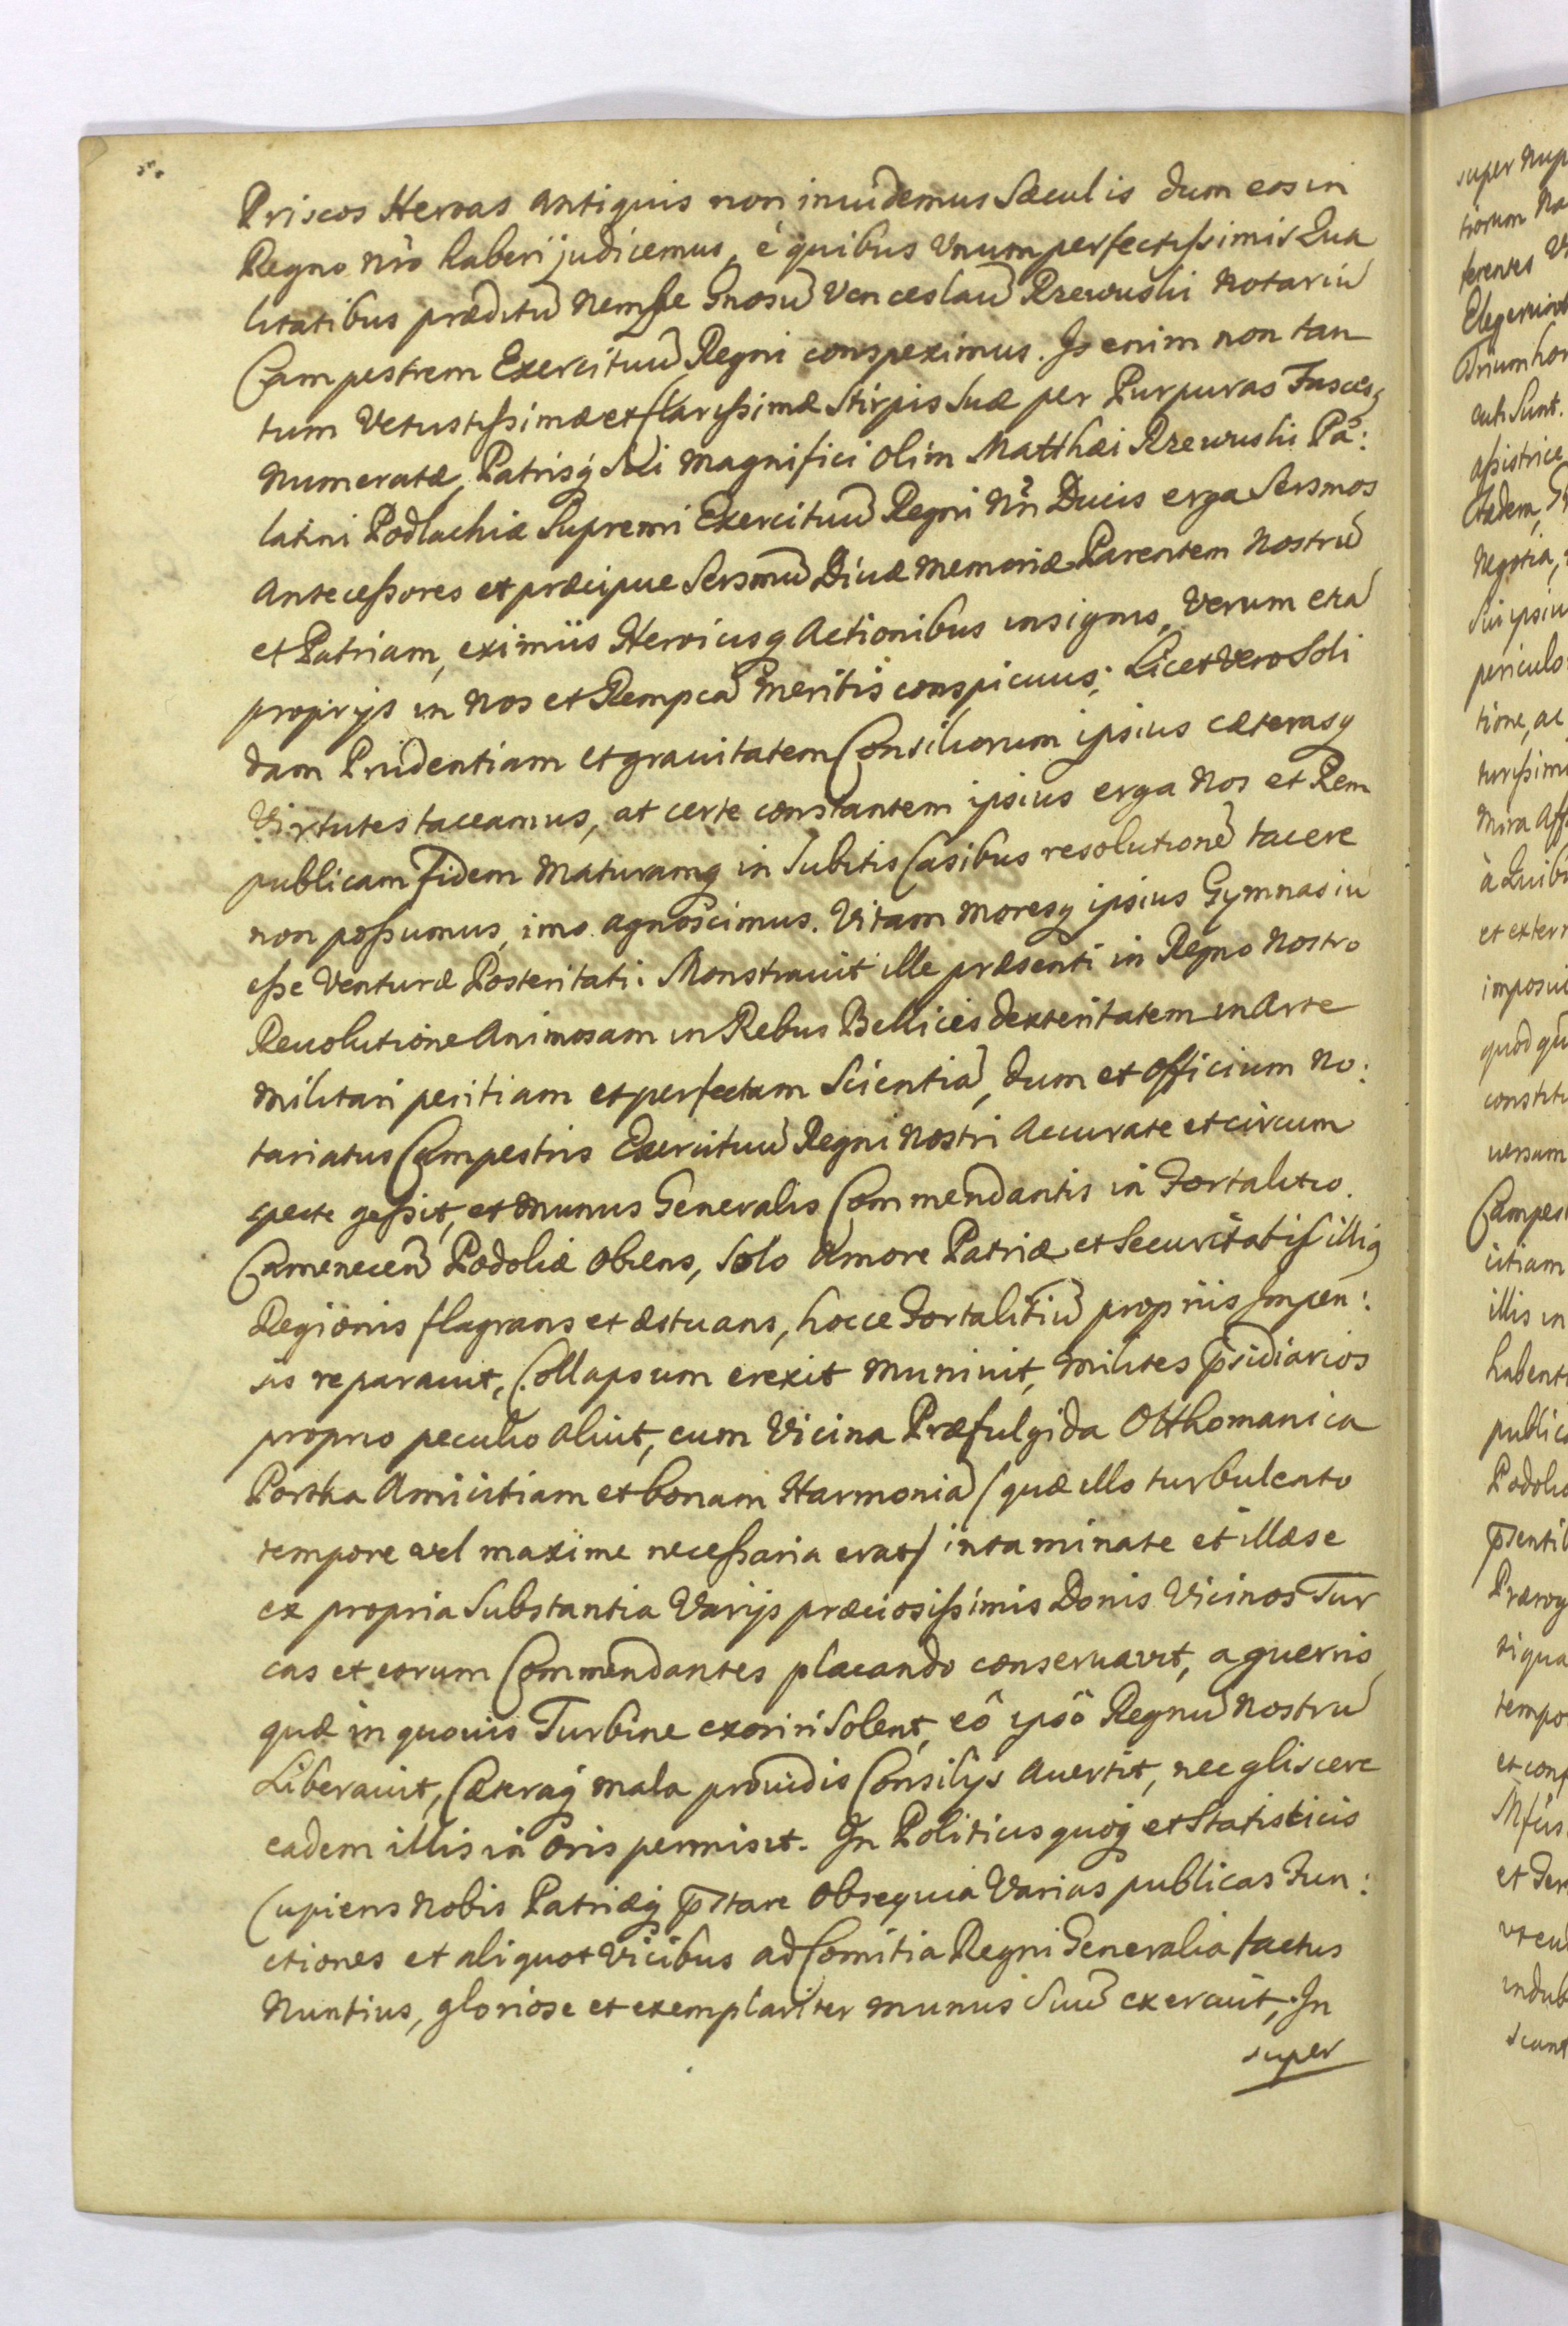 Priscos Heroas antiquis non inuidemus Sæculis dum eos in
Regno nrõ haberi judicemus, è quibus Unum perfectissimis Qua
litatibus præditũ nempe Gnosũ Venceslaũ Rzewuski Notariũ
Campestrem Exercituũ Regni conspeximus. Is enim non tan
tum Vetustissimæ et Clarissimæ Stirpis suæ per Purpuras Fascesq
numeratæ, Patrisq Sui Magnifici olim Matthæi Rzewuski Pa:
latini Podlachiæ Supremi Exercituũ Regni Nři Ducis erga Sersmos
Antecessores et præcipue Sersmũ Diuæ Memoriæ Parentem Nostrũ
et Patriam, eximiis Heroicisq Actionibus insignis, Verum etiã
proprijs in Nos et Rempcã Meritis conspicuus; Licet vero Soli
dam Prudentiam et grauitatem Consiliorum ipsius cæterasq
Virtutes taceamus, at certe constantem ipsius erga Nos et Rem
publicam Fidem Maturamq in Subitis Casibus resolutionẽ tacere
non possumus, imo agnoscimus. Vitam Moresq ipsius Gymnasiũ
esse Venturæ Posteritati. Monstrauit ille præsenti in Regno Nostro
Reuolutione Animosam in Rebus Bellicis dexteritatem in Arte
Militari peritiam et perfectam Scientiã, dum et Officium No:
tariatus Campestris Exercituũ Regni Nostri Accurate et circum
specte gessit, et Munus Generalis Commendantis in Fortalitio
Camenecen̄ Podoliæ obiens, Solo Amore Patriæ et Securitatis illiq
Regionis flagrans et æstuans, hocce Fortalitiũ propriis Impen:
sis reparauit, Collapsum erexit Muniuit, Milites p̄sidiarios
proprio peculio aluit, cum Vicina Præfulgida Otthomanica
Portha Amicitiam et bonam Harmoniã (quæ illo turbulento
tempore vel maxime necessaria erat) intaminate et illæse
ex propria Substantia Varijs præciosissimis Donis Vicinos Tur
cas et eorum Commendantes placando conseruavit, a guerris
quæ in quouis Turbine exoriri Solent, eô ipsô Regnũ Nostrũ
Liberauit, Cæteraq mala prouidis Consilijs Auertit, nec gliscere
eadem illis in oris permisit. In Politicis quoq et Statisticis
Cupiens Nobis Patriæq p̄stare obsequia Varias publicas Fun:
ctiones et aliquot Vicibus ad Comitia Regni Generalia factus
Nuntius, gloriose et exemplariter Munus Suũ exercuit, In
super
super
Elegerunt
cuti Sunt.
assistrice
Negotia,
periculo
tione, ac
Mira
imposui
constitu
Campes
illis in
habent
public
Podolia
p̄senti
tempo
et conf